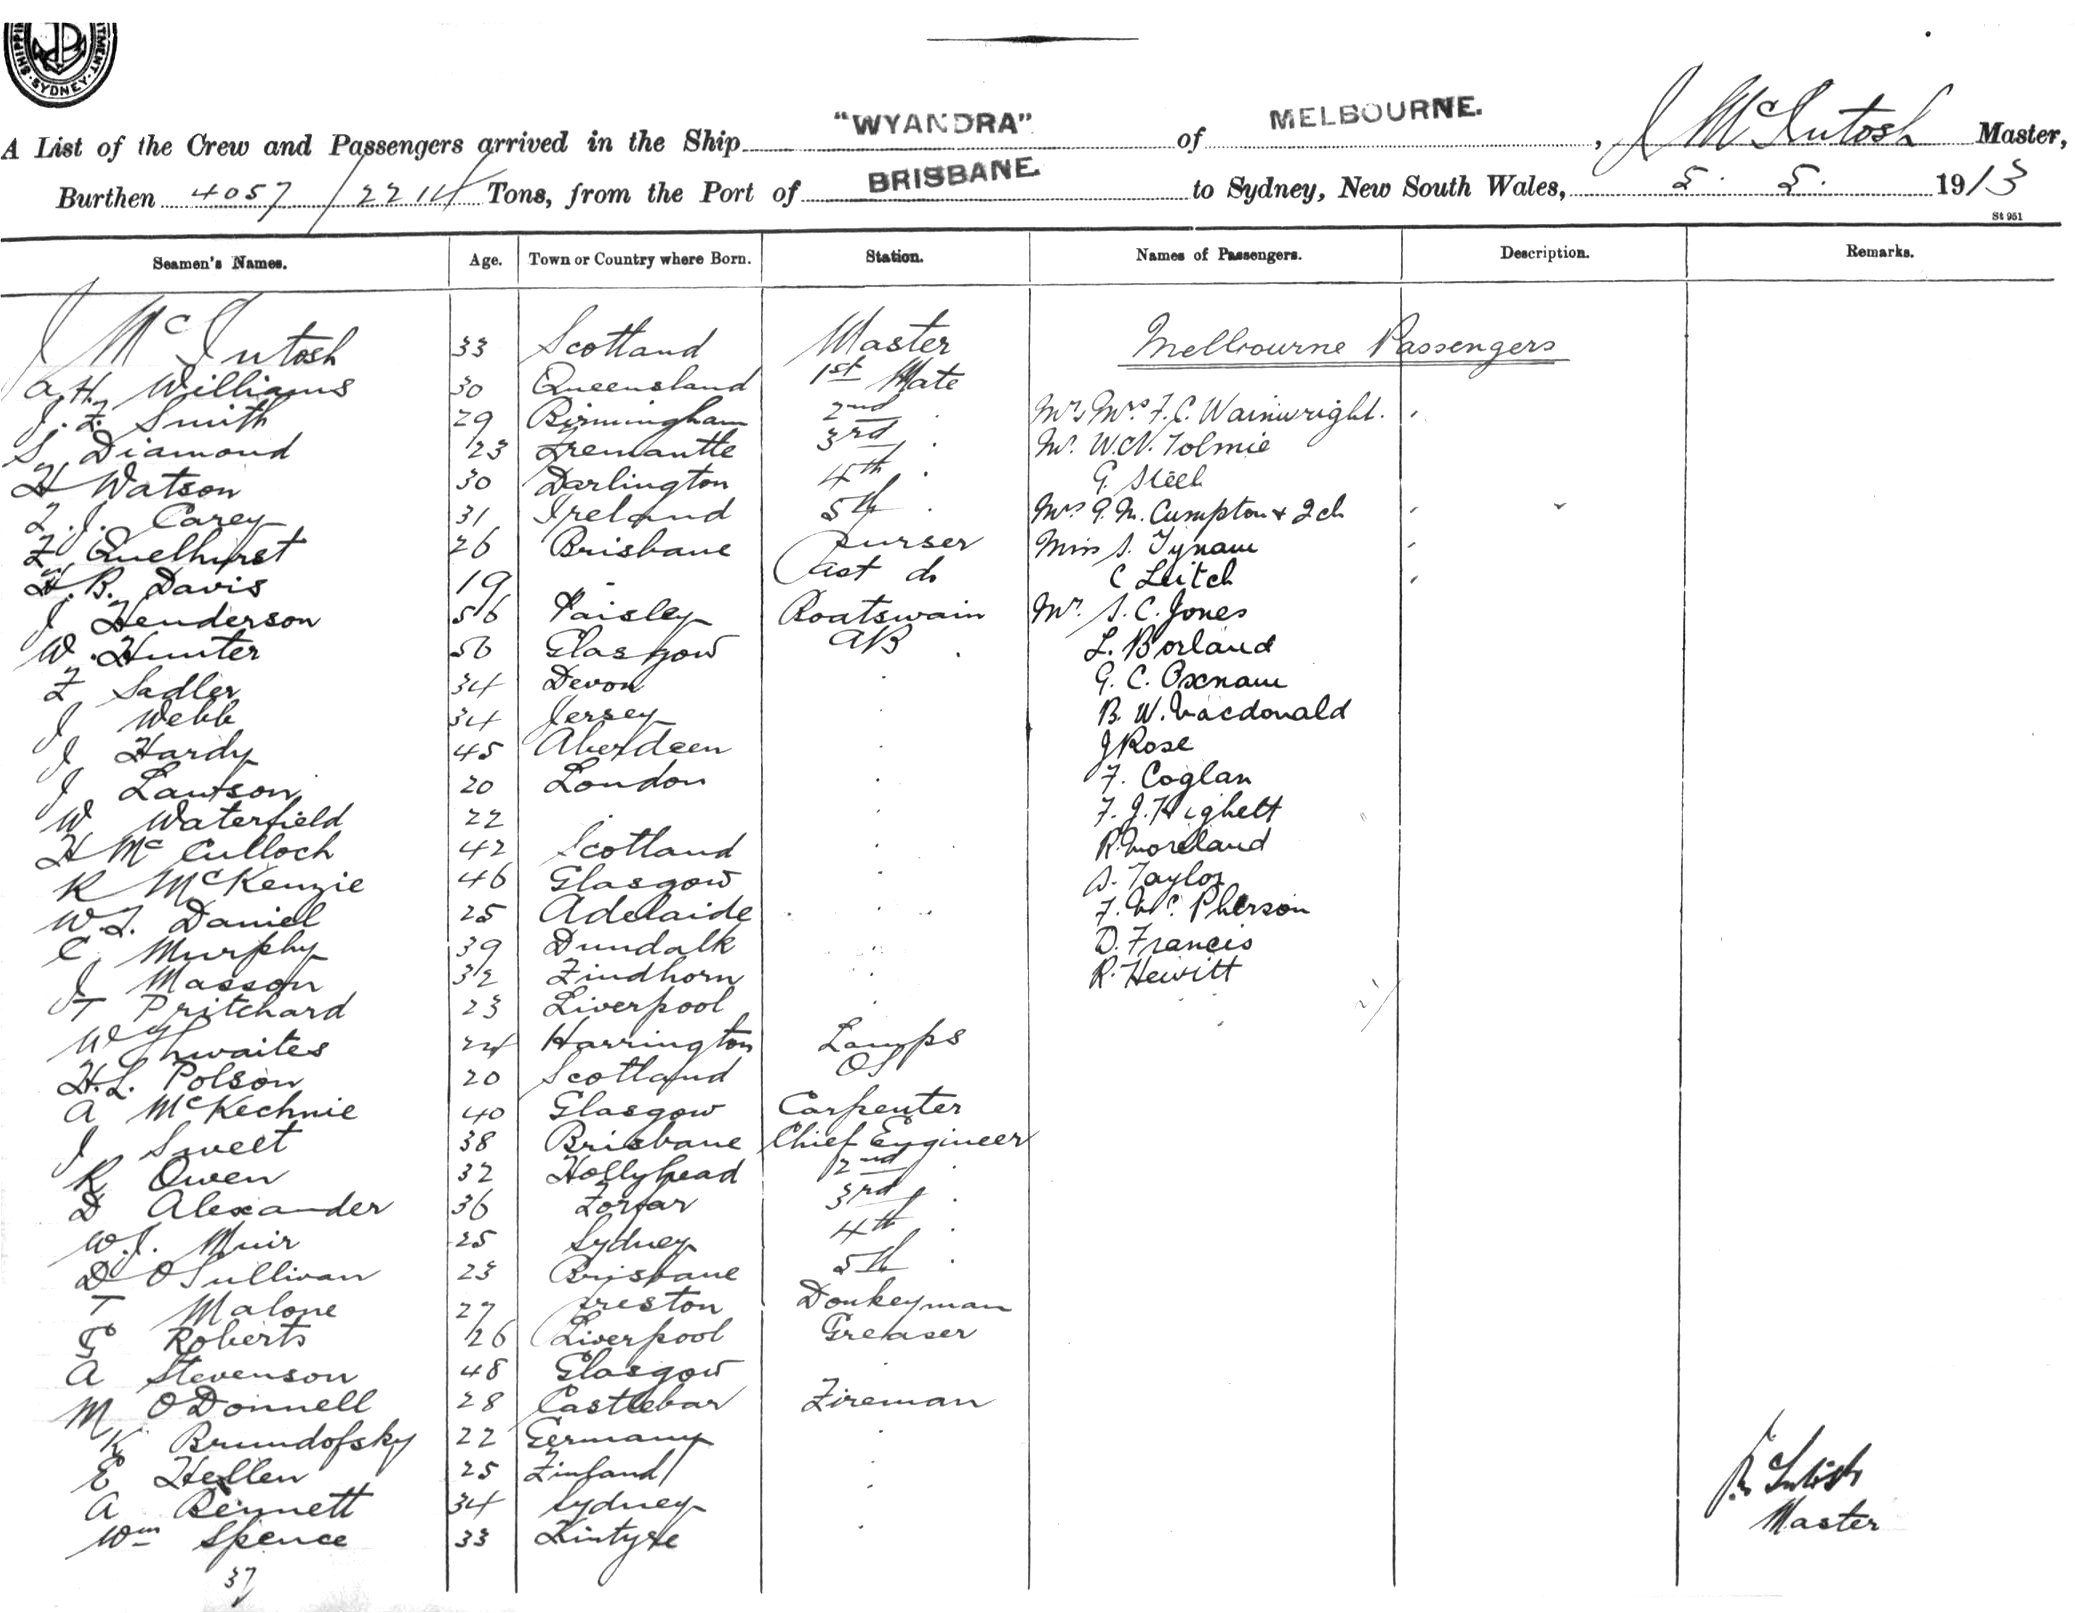 SYDNEY
"WYANDRA" MELBOURNE.
A List of the Crew and Passengers arrived in the Ship of , J McIntosh Master,
Burthen 4057/2214 Tons, from the Port of BRISBANE to Sydney, New South Wales, 5. 5. 1913
St 951
Seamen's Names. Age. Town or Country where Born. Station. Names of Passengers. Description. Remarks.
J McIntosh 33 Scotland Master Melbourne Passengers
A.H. Williams 30 Queensland 1st Mate
J. F. Smith 29 Birmingham 2nd . Mr & Mrs F. C. Wainwright.
S. Diamond 23 Fremantle 3rd . Mr. W.N. Tolmie
H Watson 30 Darlington 4th . G. Steel
F. J. Carey 31 Ireland 5th . Mrs G. M. Cumpton & 2 ch
F Quelhurst 26 Brisbane Purser Miss S. Tynam
H. B. Davis 19 Asst do C Leitch
J Henderson 56 Paisley Boatswain Mr. S. C. Jones
W. Hunter 56 Glasgow AB . L. Borland
F Sadler 34 Devon G. C. Oxnam
J Webb 34 Jersey B. W. Macdonald
J Hardy 45 Aberdeen J Rose
J Lawson 20 London F. Coglan
W Waterfield 22 F. J. Highett
H McCulloch 42 Scotland R. Moreland
R McKenzie 46 Glasgow S. Taylor
W.F. Daniel 25 Adelaide F. McPherson
C. Murphy 39 Dundalk D. Francis
J Masson 32 Findhorn R. Hewitt
T Pritchard 23 Liverpool
W Thwaites 24 Harrington Lamps
H.L. Polson 20 Scotland OS
A McKechnie 40 Glasgow Carpenter
J Sweet 38 Brisbane Chief Engineer
R Owen 32 Hollyhead 2nd .
D Alexander 36 Forfar 3rd .
W.J. Muir 25 Sydney 4th .
D OSullivan 23 Brisbane 5th .
T Malone 27 Preston Donkeyman
G Roberts 26 Liverpool Greaser
A Stevenson 48 Glasgow
M ODonnell 28 Castlebar Fireman
K Brundofsky 22 Germany
E Hellen 25 Finland
A Bennett 34 Sydney
Wm Spence 33 Kintyre
37
J McIntosh
Master